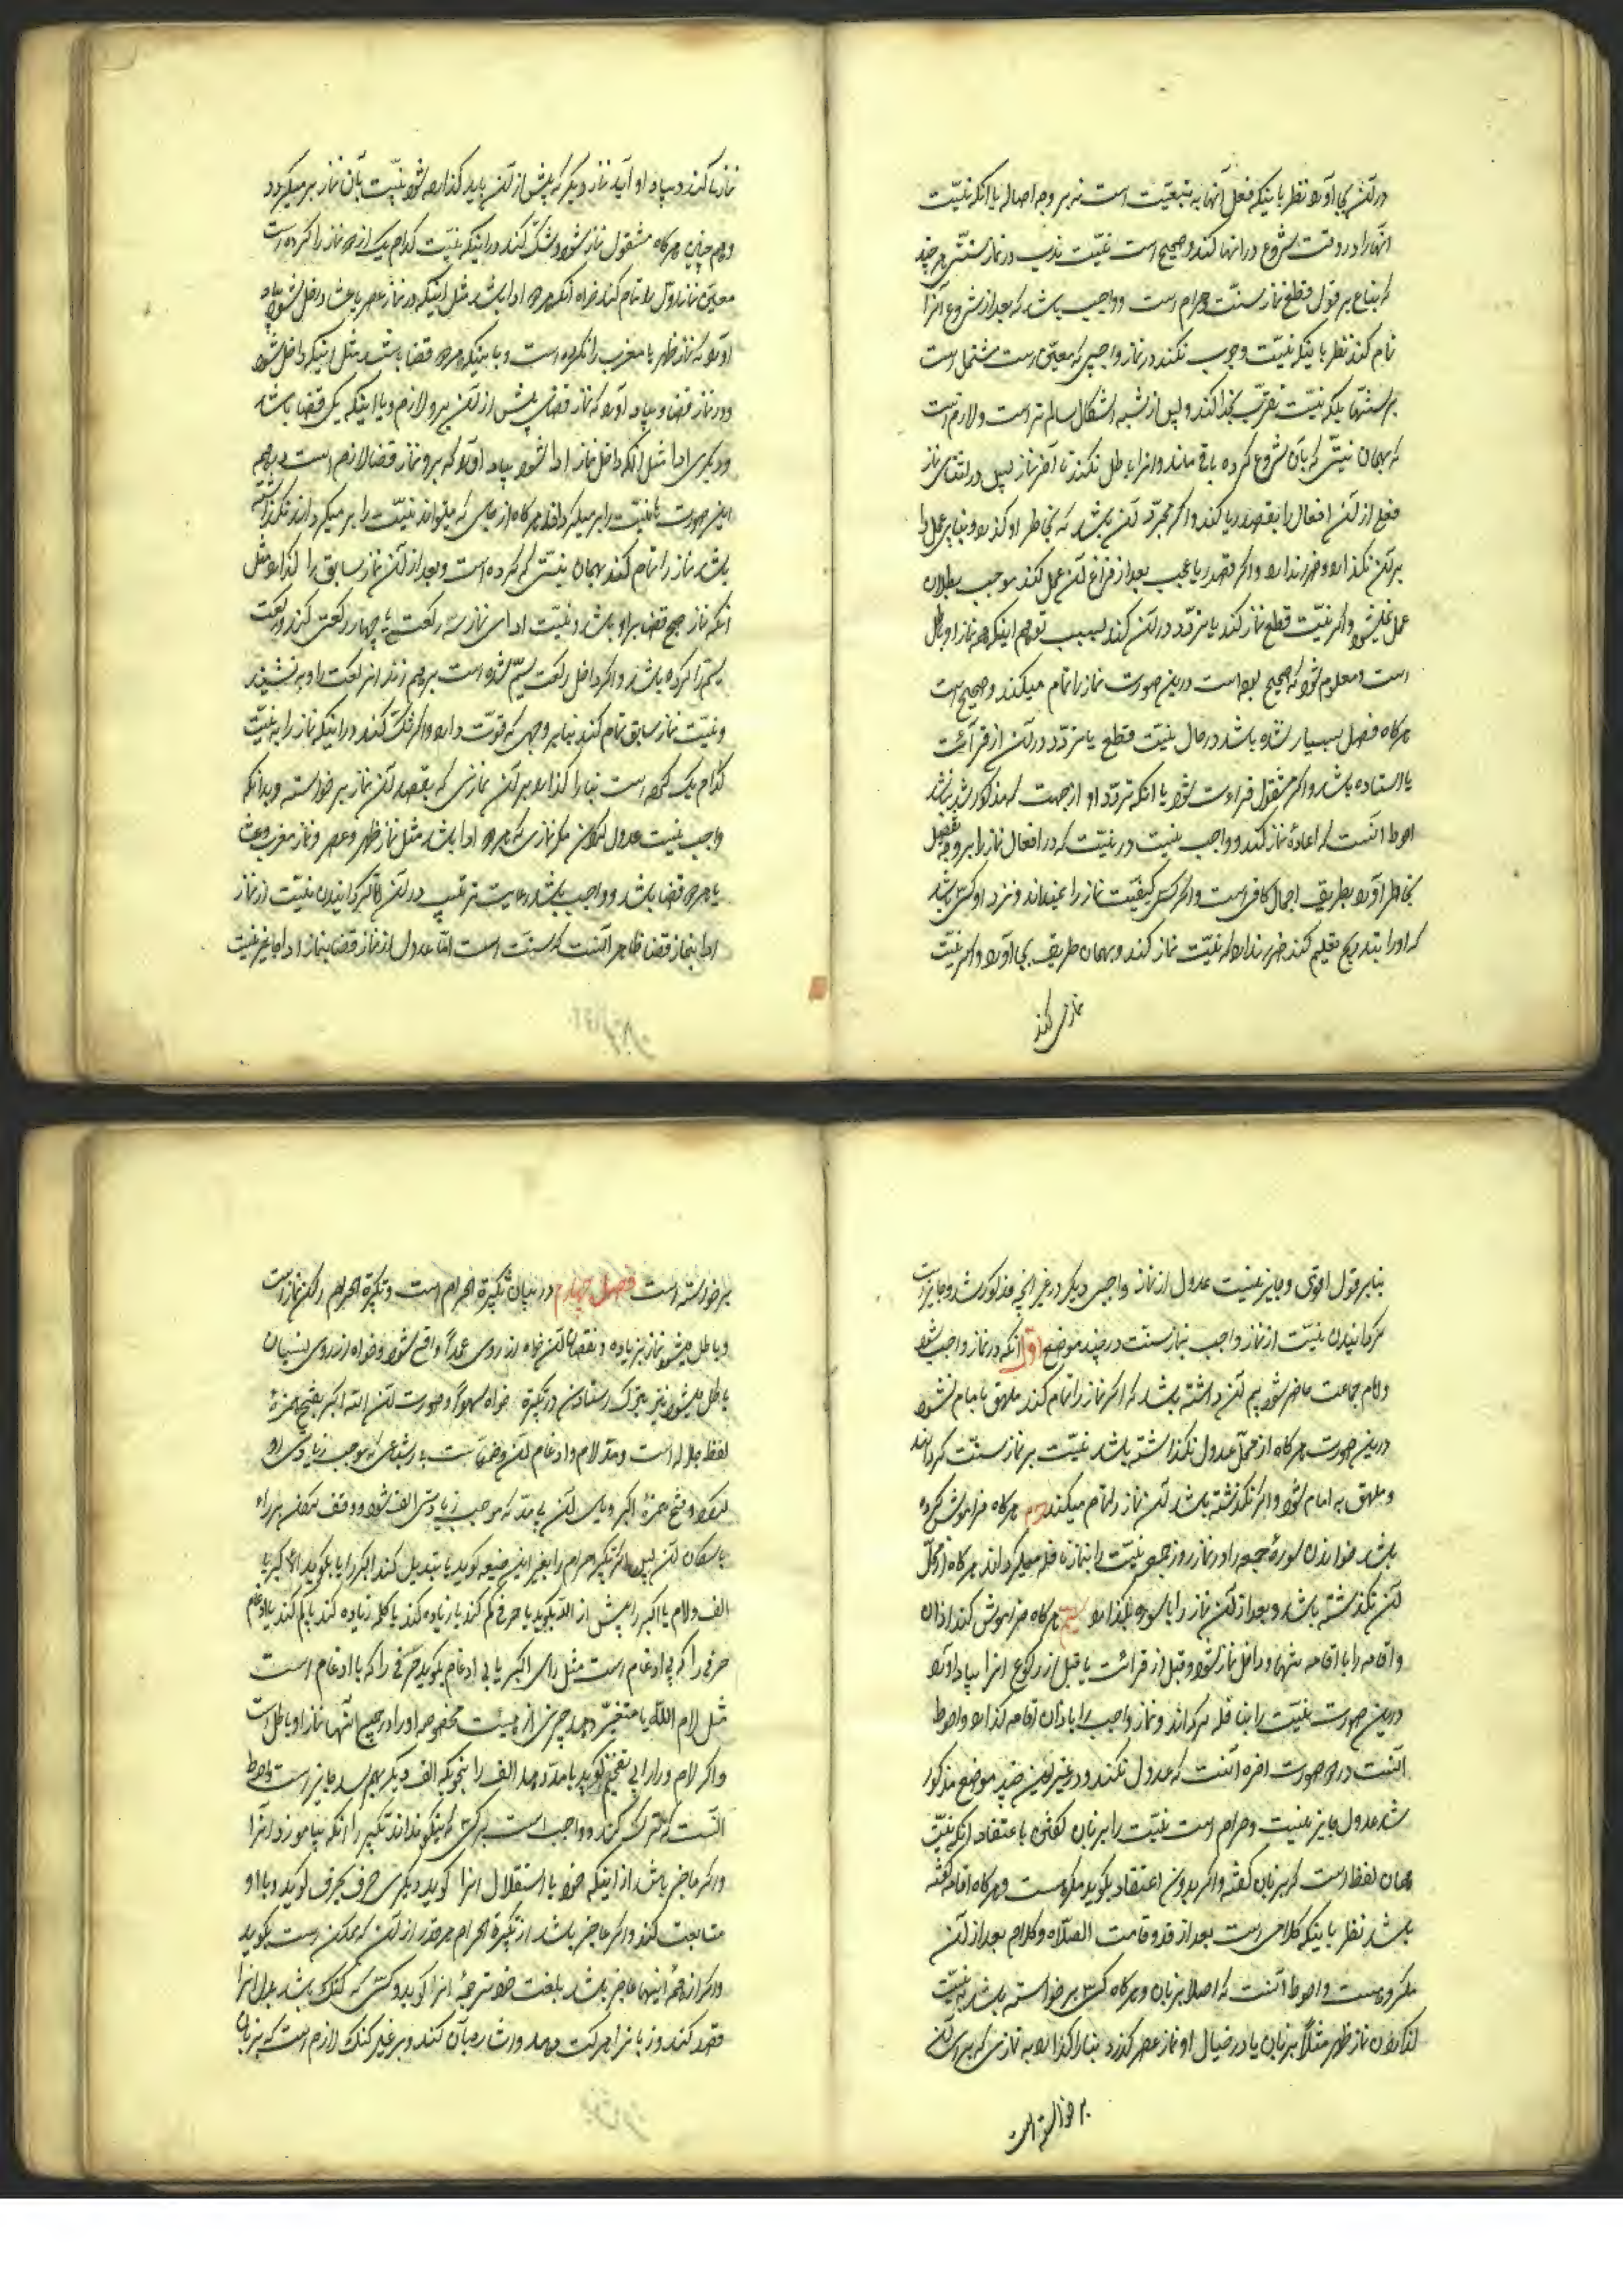 در آن بجا آورد نظر باینکه فعل آنها به تبعیّت است نه بر وجه اصاله یا آنکه نیّت
آنها را در وقت شروع در آنها کند و صحیح است نیّت ندب در نماز سنّتی هر چند
که بناء بر قول قطع نماز سنّت حرام است و واجب باشد که بعد از شروع آنرا
تمام کند نظر باینکه نیّت وجوب نکند در نماز واجبی که معیّن است مشتمل است
بر سنّتها بلکه نیّت تقرّب بخدا کند و پس از شبه اشکال سالم‌تر است و لازم است
که بهمان نیّتی که بآن شروع کرده باقی ماند و آنرا باطل نکند تا آخر نماز پس در اثنای نماز
فعلی از آن افعال را بقصد ریا کند و اگر مجرّد آن باشد که بخاطر او گذرد و بنای عمل را
بر آن نگذارد ضرر ندارد و اگر قصد ریا یا عجب بعد از فراغ آن عمل کند موجب بطلان
عمل نمیشود و اگر نیّت قطع نماز کند یا تردّد در آن کند بسبب توهم اینکه نماز او باطل
است و معلوم شود که صحیح بوده است در این صورت نماز را تمام میکند و صحیح است
هرگاه فصل بسیار نشده باشد در حال نیّت قطع یا تردّد در آن از قرائت
یا استاده باشد و اگر مشغول قرائت شود یا آنکه تردّد او از جهت مذکور شد نباشد
احوط آنست که اعادهٔ نماز کند و واجب نیست در نیّت که در افعال نماز را بر وجه تفصیل
بخاطر آورد بطریق اجمال کافی است و اگر کسی کیفیّت نماز را نمیداند و نزد او کسی باشد
که او را بتدریج تعلیم کند ضرر ندارد که نیّت نماز کند و بهمان طریق بجا آورد و اگر نیّت
نمازی کند
نمازی کند و بیاد او آید نماز دیگر که پیش از آن باید گذارده شود نیّت بآن نماز بر میگردد
و هم چنین هرگاه مشغول نماز شود و شکّ کند در اینکه نیّت کدام یک از دو نماز را کرده است
معیّن نماز اوّل را تمام کند خواه آنکه هر دو ادا باشد مثل اینکه در نماز عصر یا عشا داخل شود و بیاد
آورد که نماز ظهر یا مغرب را نکرده است و یا اینکه هر دو قضا باشد مثل اینکه داخل شود
در نماز قضا و بیاد آورد که نماز قضای پیش از آن بر او لازم و یا اینکه یکی قضا باشد
و دیگری ادا مثل آنکه داخل نماز ادا شود و بیاد آورد که بر او نماز قضا لازم است در همه
این صورت نیّت را بر میگرداند هرگاه از جای که میتواند نیّت را بر میگرداند نگذشته
باشد نماز را تمام کند بهمان نیّتی که کرده است و بعد از آن نماز سابق را گذارد مثل
آنکه نماز صبح قضا بر او باشد و نیّت ادای نماز سه رکعت یا چهار رکعتی کند و رکعت
سیّم را کرده باشد و اگر داخل رکعت سیّم شده است بر هم زند آن رکعت را و بنشیند
و نیّت نماز سابق تمام کند بنابر وجهی که قوّت دارد و اگر شک کند در اینکه نماز را به نیّت
کدام یک کرده است بنا را گذارد بر آن نمازی که بقصد آن نماز بر خواسته و بدانکه
واجب نیست عدول کردن مگر نمازی که هر دو ادا باشد مثل نماز ظهر و عصر و نماز مغرب و عشا
یا هر دو قضا باشد و واجب باشد رعایت ترتیب در آن امّا گردانیدن نیّت از نماز
ادا بنماز قضا ظاهر آنست که سنّت است امّا عدول از نماز قضا بنماز ادا جایز نیست
بنابر قول اقوی و جایز نیست عدول از نماز واجبی دیگر در غیر آنچه مذکور شد و جایز است
گردانیدن نیّت از نماز واجب بنماز سنّت در چند موضع اوّل آنکه در نماز واجب شود
و امام جماعت حاضر شود بیم آن داشته باشد که اگر نماز را تمام کند ملحق بامام نشود
در این صورت هرگاه از محلّ عدول نگذشته باشد نیّت بر نماز سنّت گرداند
و ملحق به امام شود و اگر نگذشته باشد آن نماز را تمام میکند دوم هرگاه فراموش کرده
باشد خواندن سورهٔ جمعه را در نماز روز جمعه نیّت را بنماز نافله میگرداند هرگاه از محلّ
آن نگذشته باشد و بعد از آن نماز را با سوره بگذارد سیّم هرگاه فراموش کند اذان
و اقامه را یا اقامه تنها و داخل نماز شود و قبل از قرائت یا قبل از رکوع آنرا بیاد آورد
در این صورت نیّت را بنافله گرداند و نماز واجب را با اذان اقامه گذارد و احوط
آنست در دو صورت اخره آنست که عدول نکند و در غیر این چند موضع مذکور
شد عدول جایز نیست و حرام است نیّت را بر زبان گفتن با اعتقاد آنکه نیّت
همان لفظ است که بر زبان گفته و اگر بدون اعتقاد بگوید مکروه است و هرگاه اقامه گفته
باشد نظر باینکه کلامی است بعد از قد قامت الصّلاة و کلام بعد از آن
مکروهست و احوط آنست که اصلا بر زبان و هرگاه کسی بر خواسته باشد به نیّت
گذاردن نماز ظهر مثلاً بر زبان یا در خیال او نماز عصر گذرد بنا را گذارد به نمازی که برای آن
بر خواسته است
بر خواسته است فصل چهارم در بیان تکبیرة احرام است و تکبیرة احرام رکن نماز است
و باطل میشود نماز بزیاده و نقصان آن خواه از روی عمداً واقع شود و خواه از روی نسیان
باطل میشود نیز بترک استادن در تکبیره خواه سهواً و صورت آن الله اکبر بفتح همزهٔ
لفظ جلاله است و مدّ لام و ادغام آن و ضمّ هاست به اشباعی که موجب زیادی واو
نشود و فتح همزهٔ اکبر و بای آن بی مدّ که موجب زیادتی الف شود و وقف کردن بر راء
باسکان آن پس اگر تکبیر احرام را بغیر این صیغه گوید یا تبدیل کند اکبر را یا بگوید الاکبر با
الف و لام یا اکبر را پیش از الله بگوید یا حرفی کم کند یا زیاده کند یا کلمه زیاده کند یا کم کند یا با ادغام
حرفی را که بی ادغام است مثل رای اکبر یا بی ادغام بگوید حرفی را که با ادغام است
مثل لام الله یا متغیّر دهد چیزی از هیئت مخصوصه او را در جمیع اینها نماز او باطل است
و اگر لام و را را بی تفخیم گوید یا مدّ دهد الف را بنحویکه الف دیگر بهم رسد جایز است و احوط
آنست که ترک کند و واجب است بر کسی که نیکو نداند تکبیر را آنکه بیاموزد آنرا
و اگر عاجز باشد از اینکه خود باستقلال آنرا گوید دیگری حرف بحرف گوید و با او
متابعت کند و اگر عاجز باشد از تکبیرة احرام هر قدر از آن که ممکن است بگوید
و اگر از همهٔ اینها عاجز باشد بلغت خود ترجمهٔ آنرا گوید و کسی که گنگ باشد بدل آنرا
قصد کند و زبانرا حرکت دهد و اشاره بآن کند و بر غیر گنگ لازم است که بزبان